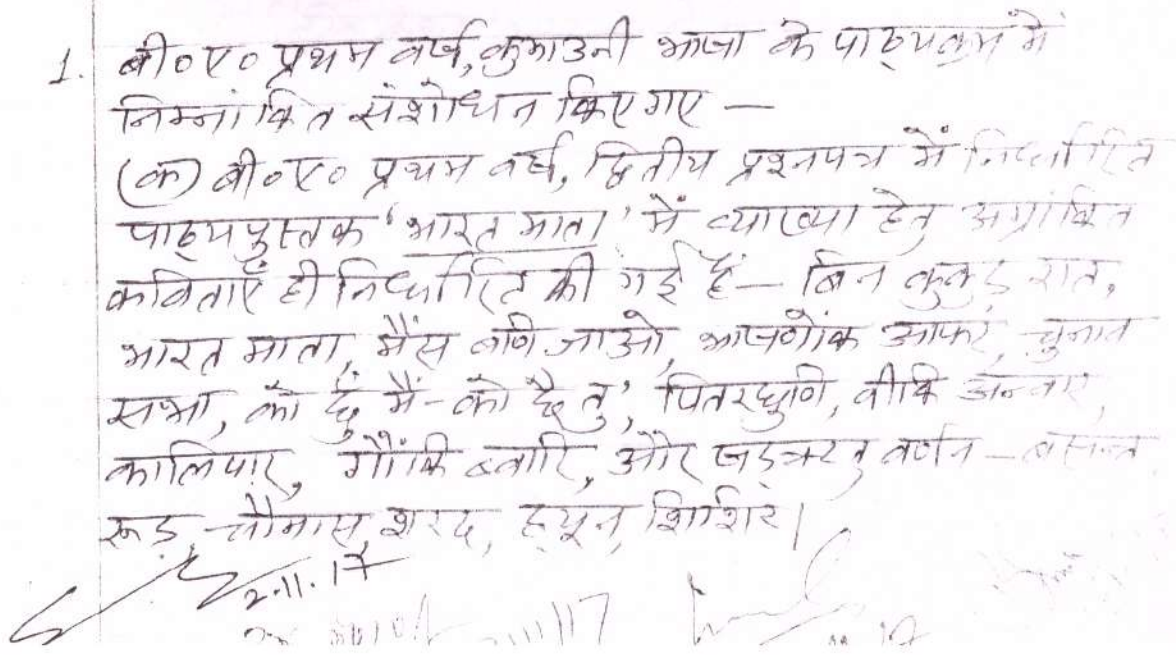 1. बी०ए० प्रथम वर्ष, कुमाउनी भाषा के पाठ्यक्रम में
निम्नांकित संशोधन किए गए —
(क) बी०ए० प्रथम वर्ष, द्वितीय प्रश्नपत्र में निर्धारित
पाठ्यपुस्तक 'भारत माता' में व्याख्या हेतु अग्रांकित
कविताएँ ही निर्धारित की गई हैं — बिन कुकुड़ रात,
भारत माता, मैंस बणि जाओ, भाषणोंक आफर, चुनाव
सभा, को छूँ मैं - को छै तु, पितरघुणि, वीकि अन्वार,
कालिपार, गौंकि ब्वारि, और षड्ऋतु वर्णन — बसन्त
रूड़, चौमास, शरद, ह्यून, शिशिर।
2.11.17